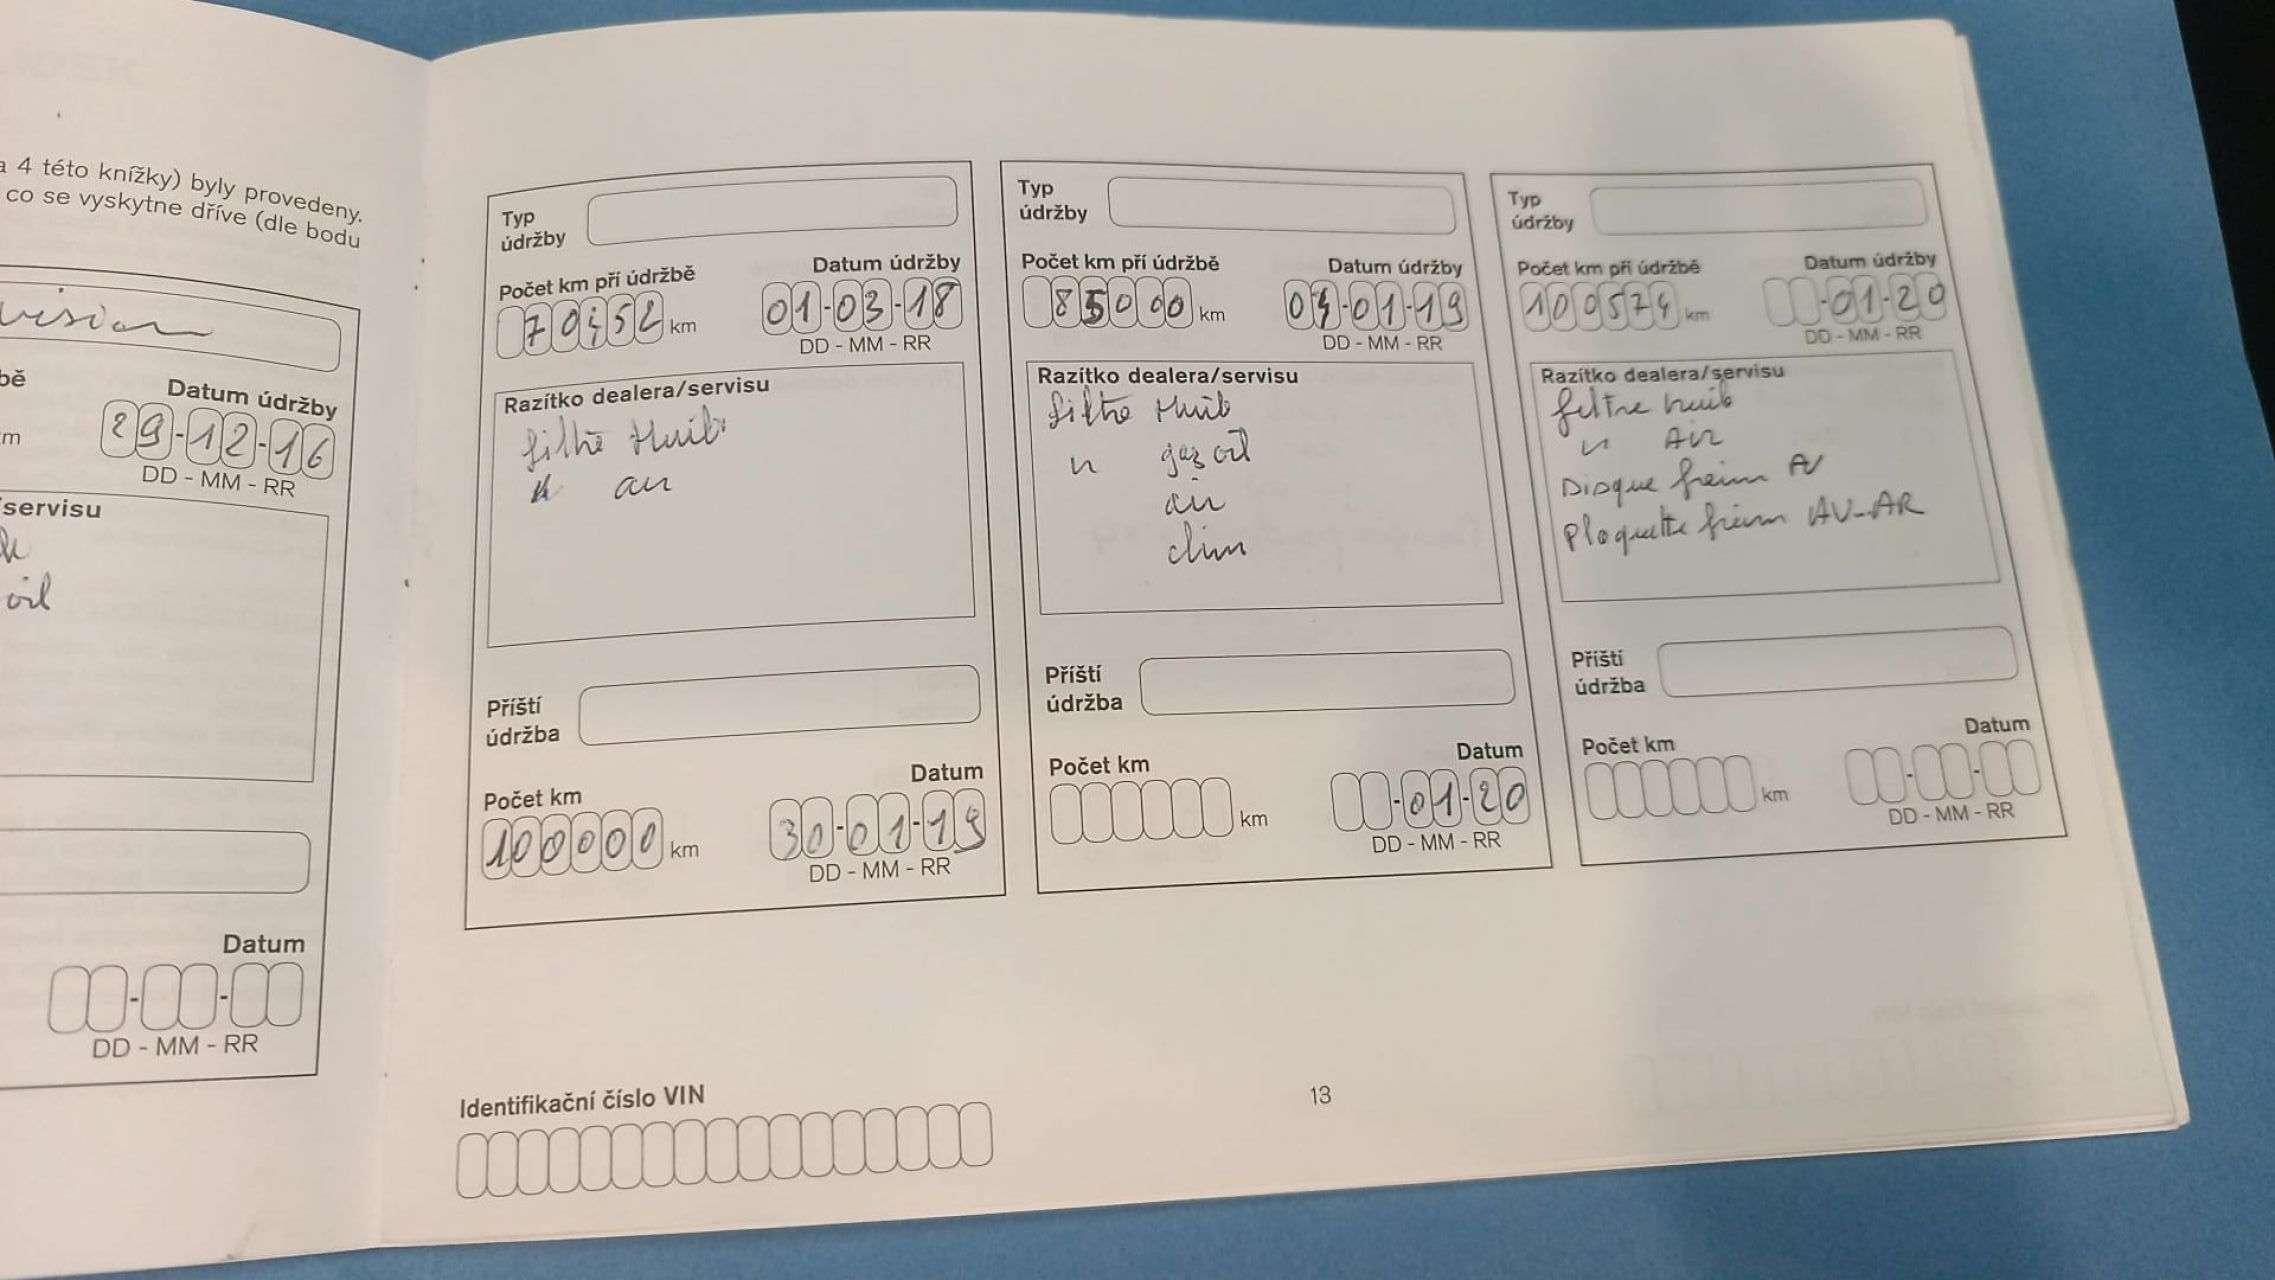 a 4 této knížky) byly provedeny.
co se vyskytne dříve (dle bodu
bě
Datum údržby
m
29-12-16
DD - MM - RR
/servisu
oil
Datum
DD - MM - RR
Typ
údržby
Počet km při údržbě
Datum údržby
70452 km
01-03-18
DD - MM - RR
Razítko dealera/servisu
filtre Huile
" air
Příští
údržba
Počet km
Datum
100000 km
30-01-19
DD - MM - RR
Typ
údržby
Počet km při údržbě
Datum údržby
85000 km
04-01-19
DD - MM - RR
Razítko dealera/servisu
filtre Huile
" gaz oil
air
clim
Příští
údržba
Počet km
Datum
km
-01-20
DD - MM - RR
Typ
údržby
Počet km při údržbě
Datum údržby
100574 km
-01-20
DD - MM - RR
Razítko dealera/servisu
filtre huile
" Air
Disque frein AV
Plaquette frein AV-AR
Příští
údržba
Počet km
Datum
km
DD - MM - RR
Identifikační číslo VIN
13